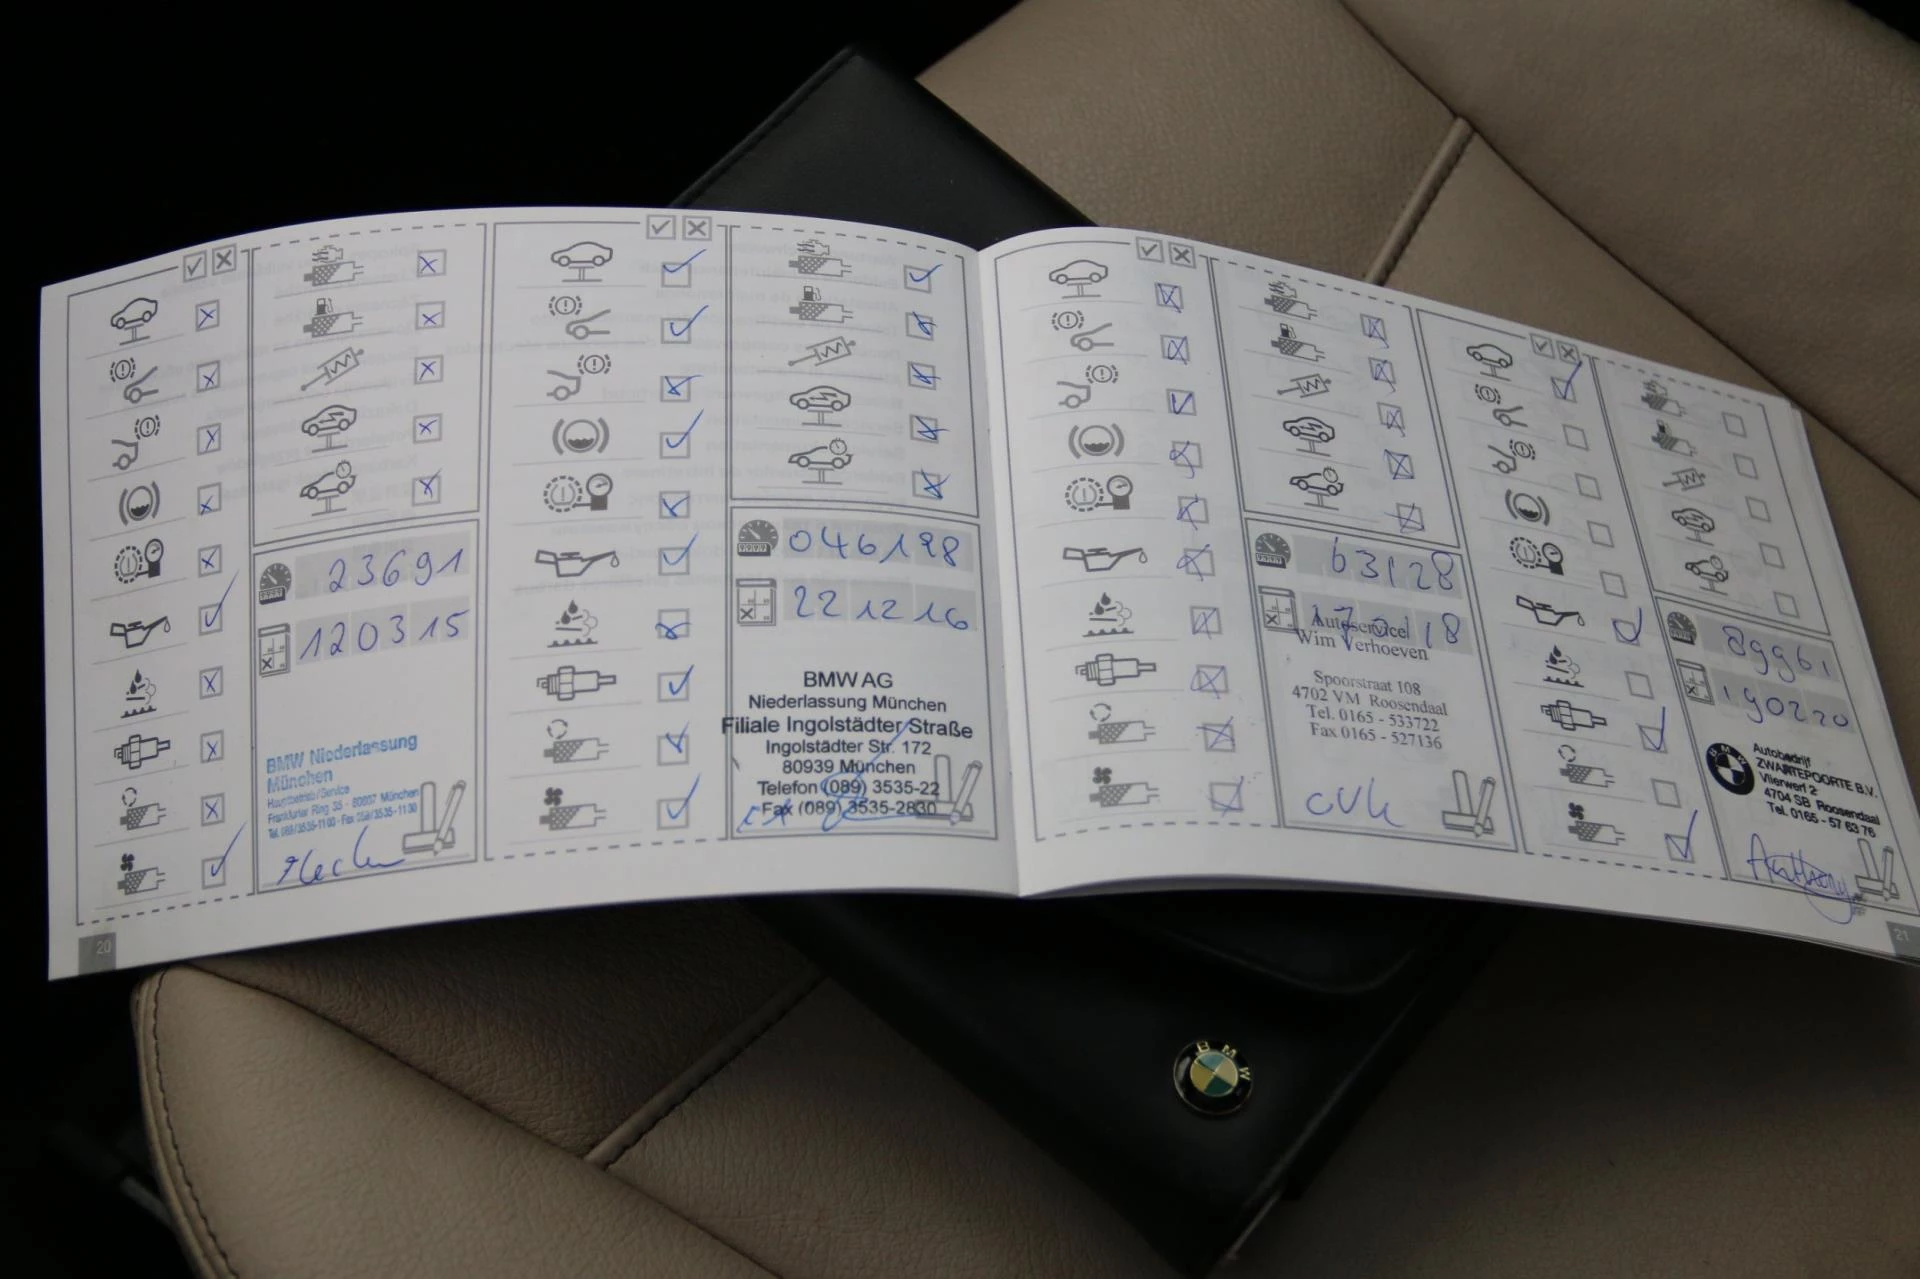 23691
120315
BMW Niederlassung
München
Hauptbetrieb/Service
Frankfurter Ring 35 - 80807 München
Tel. 089/3535-1100 - Fax 089/3535-1130
20
046198
22 12 16
BMW AG
Niederlassung München
Filiale Ingolstädter Straße
Ingolstädter Str. 172
80939 München
Telefon (089) 3535-22
Fax (089) 3535-2830
63128
18
Autoservice
Wim Verhoeven
Spoorstraat 108
4702 VM Roosendaal
Tel. 0165 - 533722
Fax 0165 - 527136
89961
190220
BMW
Autobedrijf
ZWARTEPOORTE B.V.
Vlierwerf 2
4704 SB Roosendaal
Tel. 0165 - 57 63 76
21
BMW